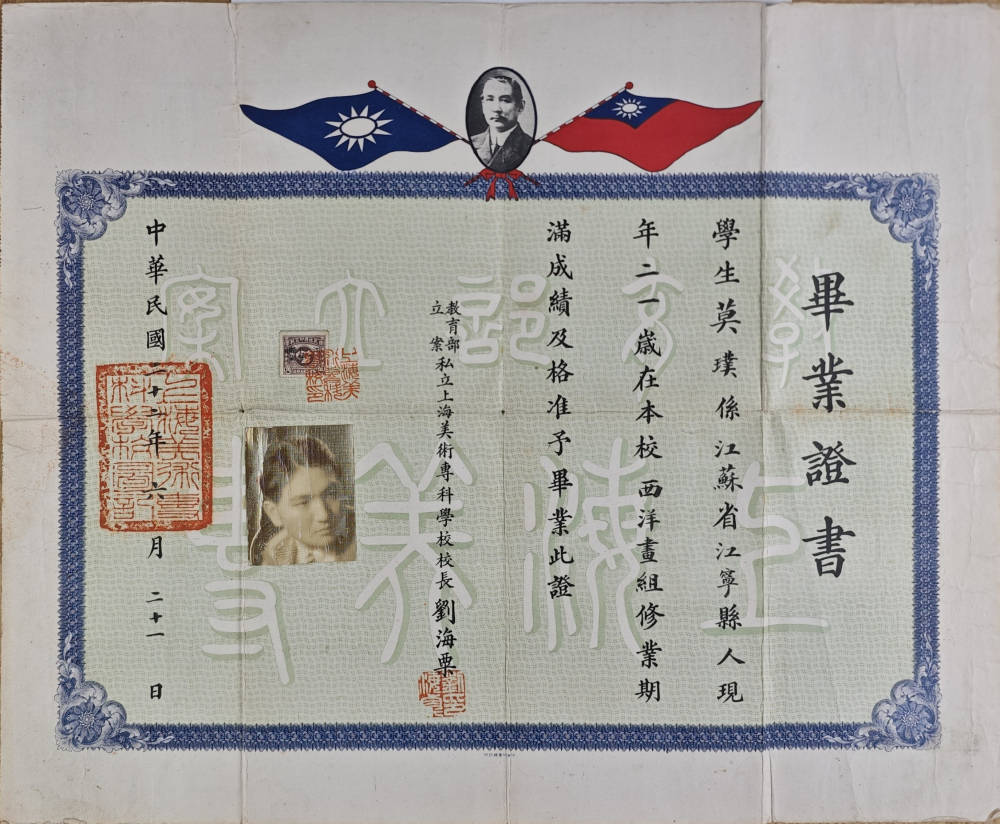 畢業證書
學生莫璞係江蘇省江寧縣人現
年二一歲在本校西洋畫組修業期
滿成績及格准予畢業此證
教育部立案私立上海美術專科學校校長劉海粟
中華民國二十二年六月二十一日
教育部立案
上海美專
上海美術專科學校圖記